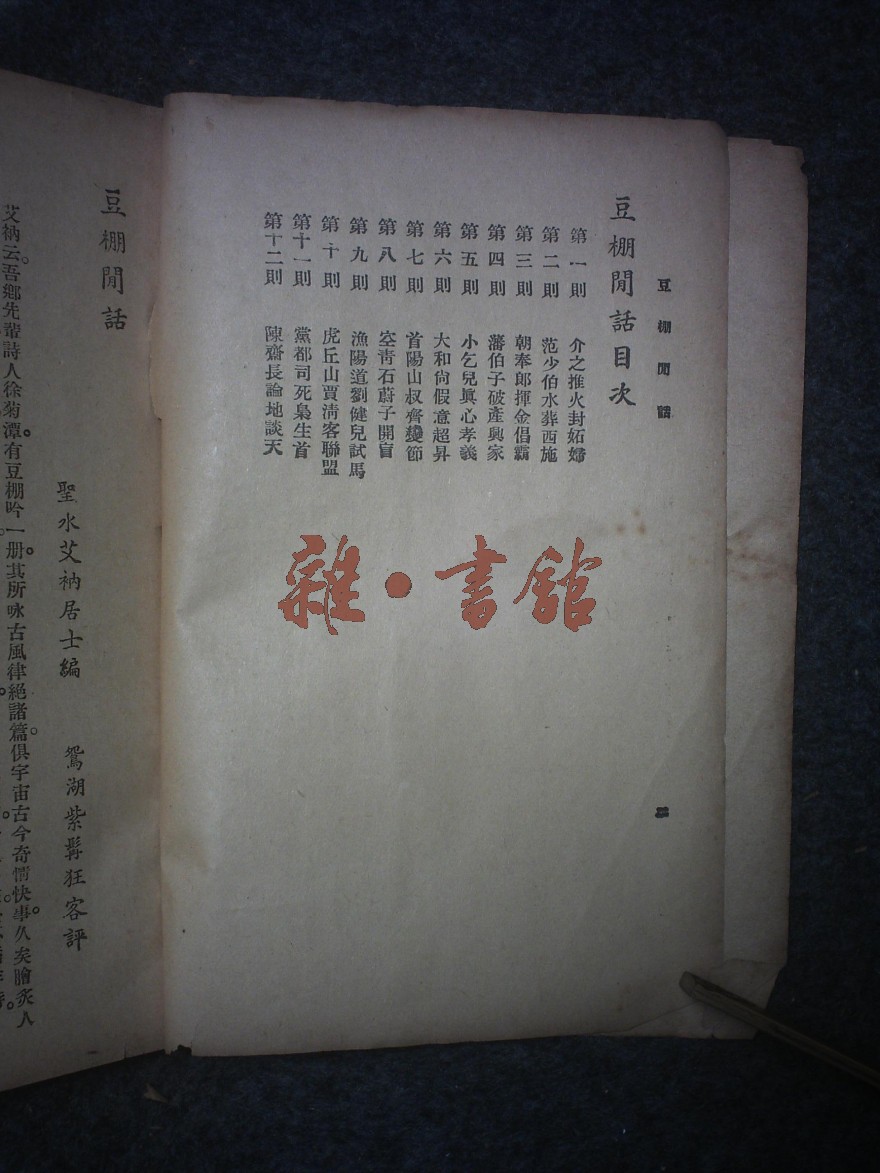 豆棚閒話
豆棚閒話目次
第一則 介之推火封妬婦
第二則 范少伯水葬西施
第三則 朝奉郎揮金倡霸
第四則 藩伯子破產興家
第五則 小乞兒眞心孝義
第六則 大和尙假意超昇
第七則 首陽山叔齊變節
第八則 空靑石蔚子開盲
第九則 漁陽道劉健兒試馬
第十則 虎丘山賈淸客聯盟
第十一則 黨都司死梟生首
第十二則 陳齋長論地談天
雜·書館
豆棚閒話
聖水艾衲居士編 鴛湖紫髯狂客評
艾衲云。吾鄉先輩詩人徐菊潭。有豆棚吟一册。其所咏古風律絕諸篇。俱宇宙古今奇情快事。久矣膾炙人